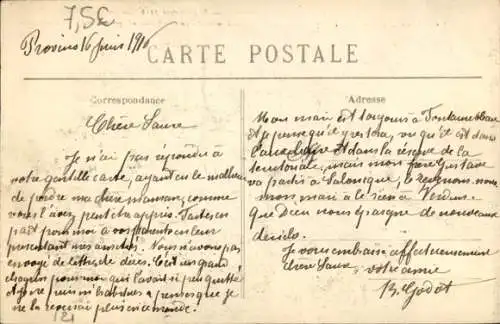 7,5€
Provins 16 juin 1916
CARTE POSTALE
Correspondance
Adresse
Chère Laure
Je n'ai pas répondu à
votre gentille carte, ayant eu le malheur
de perdre ma chère maman, comme
vous l'avez peut être appris. Faites en
part pour moi à vos parents en leur
présentant mes amitiés. Nous n'avons pas
envoyé de lettres de décès. C'est un grand
chagrin pour moi qui l'avait si peu quittée
et je ne puis m'habituer à penser que je
ne la reverrai plus en ce monde.
121
Mon mari est toujours à Fontainebleau
et je pense qu'il y restera, vu qu'il est dans
l'auxiliaire et dans la réserve de la
territoriale, mais mon frère Gustave
va partir à Salonique, le
mon mari a le sien à Verdun.
Que Dieu nous épargne de nouveaux
deuils.
Je vous embrasse affectueusement
chère Laure, votre amie
B. Godot